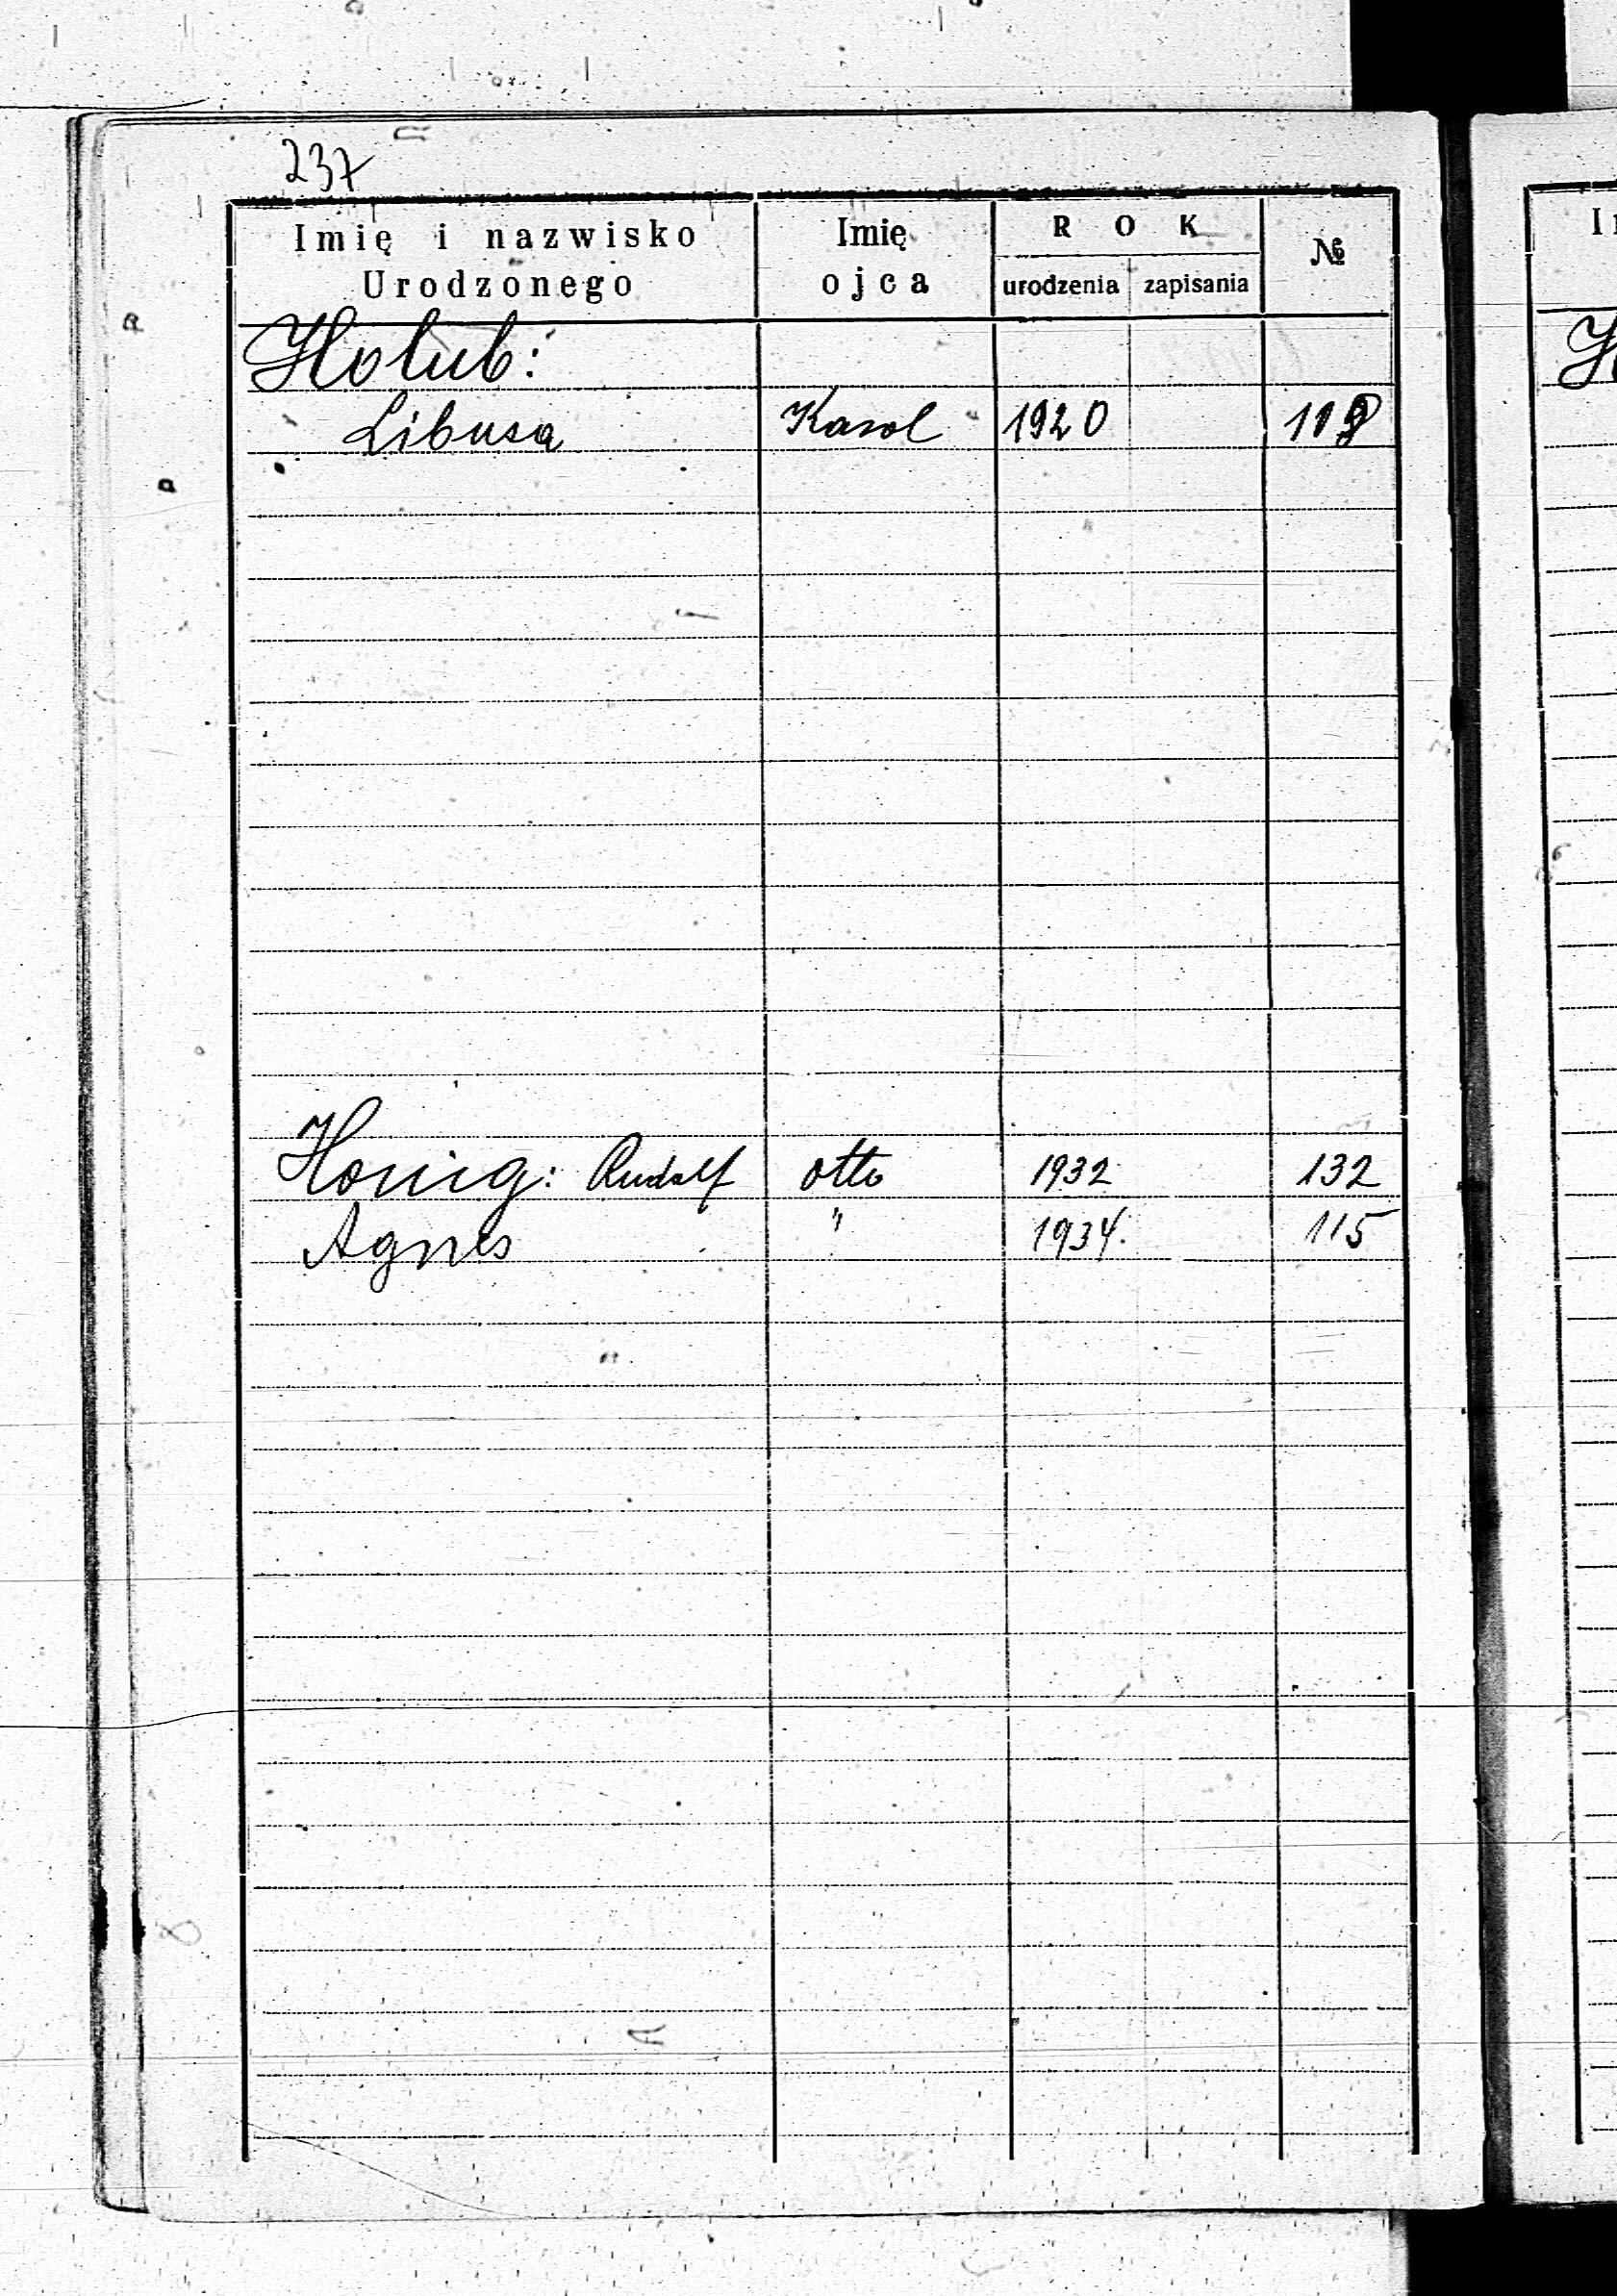 237
Imię i nazwisko Urodzonego Imię ojca ROK urodzenia zapisania №
Holub:
Libusa Karol 1920
Honig: Rudolf Otto 1932 132
Agnes " 1934. 115